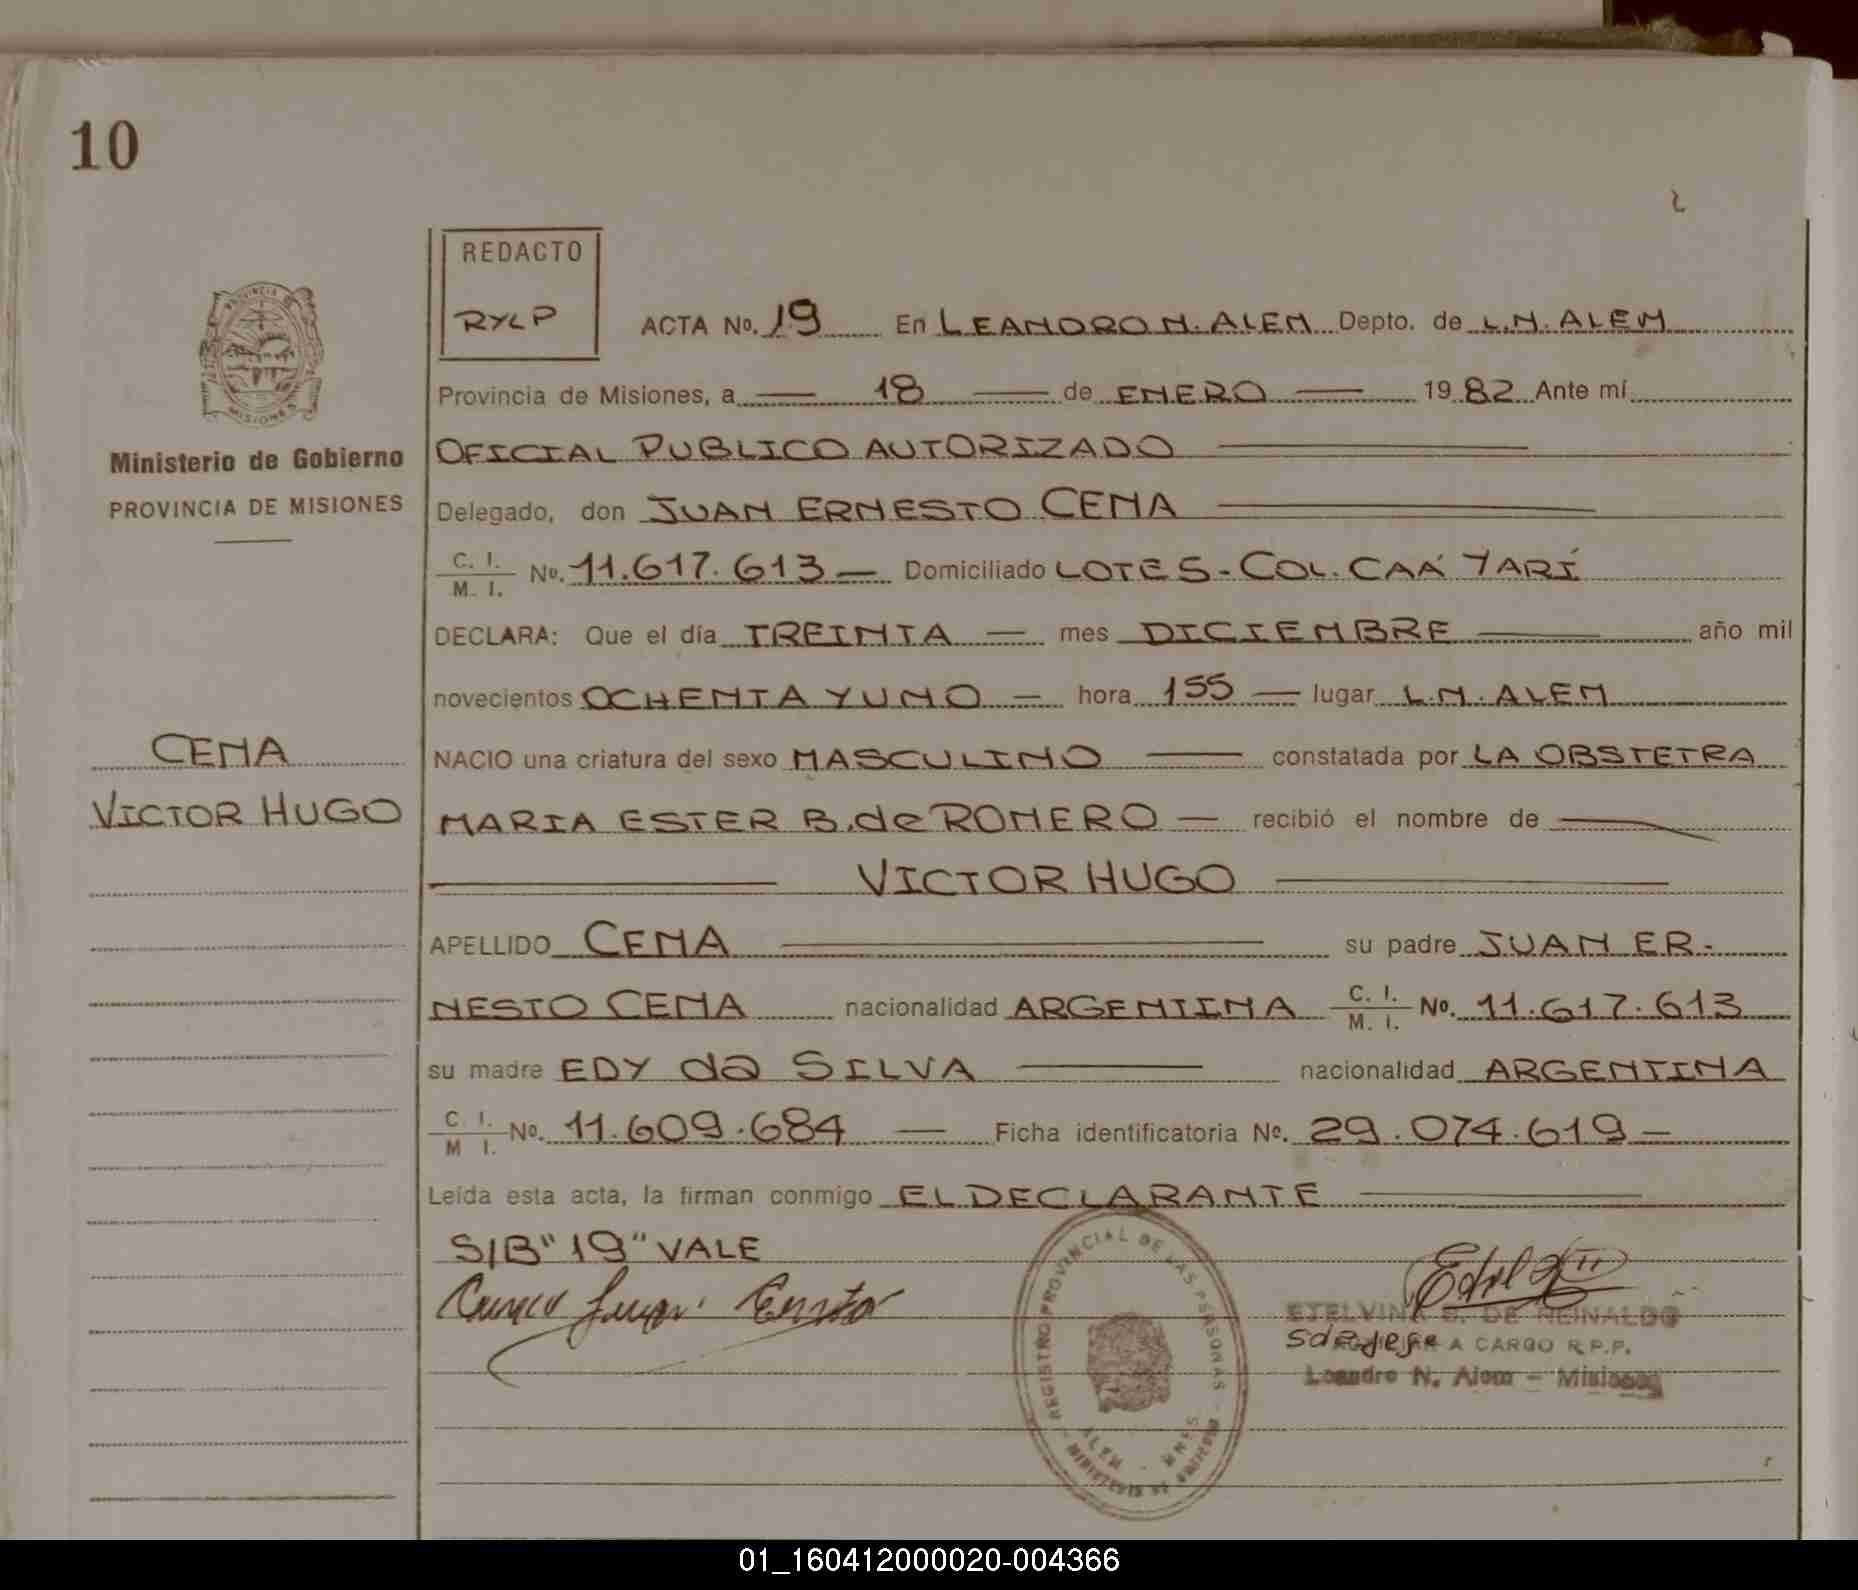 10
REDACTO
RYLP
ACTA No. 19 En LEANDRO N. ALEM Depto. de L.N. ALEM
Provincia de Misiones, a — 18 — de ENERO — 1982 Ante mí
OFICIAL PUBLICO AUTORIZADO
Delegado, don JUAN ERNESTO CENA
C. I.
M. I. No. 11.617.613 — Domiciliado LOTE 5 - COL. CAÁ YARÍ
DECLARA: Que el día TREINTA — mes DICIEMBRE — año mil
novecientos OCHENTA Y UNO — hora 155 — lugar L.N. ALEM
NACIO una criatura del sexo MASCULINO — constatada por LA OBSTETRA
MARIA ESTER B. de ROMERO — recibió el nombre de —
— VICTOR HUGO —
APELLIDO CENA — su padre JUAN ER-
NESTO CENA nacionalidad ARGENTINA C. I.
M. I. No. 11.617.613
su madre EDY da SILVA — nacionalidad ARGENTINA
C. I.
M I. No. 11.609.684 — Ficha identificatoria No. 29.074.619 —
Leída esta acta, la firman conmigo EL DECLARANTE
S/B "19" VALE
PROVINCIA DE
MISIONES
Ministerio de Gobierno
PROVINCIA DE MISIONES
CENA
VICTOR HUGO
REGISTRO PROVINCIAL DE LAS PERSONAS
ALEM - MNES
MINISTERIO DE GOBIERNO
ETELVINA S. DE REINALDO
A CARGO R.P.P.
Leandro N. Alem - Misiones
01_160412000020-004366